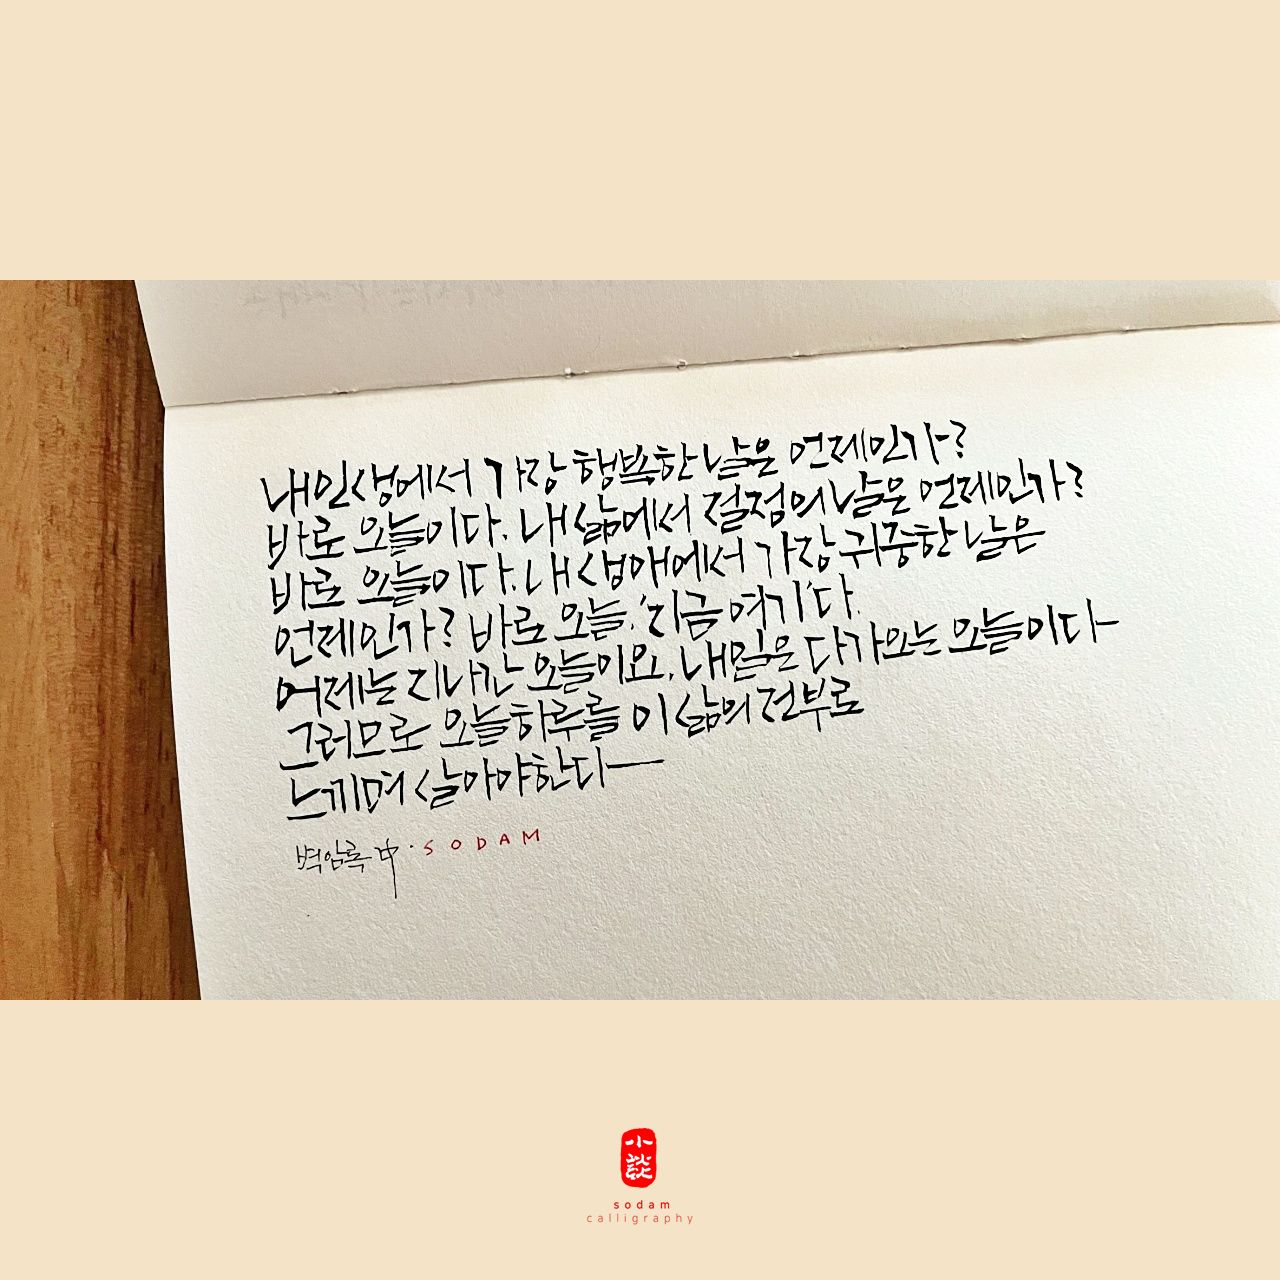 내 인생에서 가장 행복한 날은 언제인가?
바로 오늘이다. 내 삶에서 절정의 날은 언제인가?
바로 오늘이다. 내 생애에서 가장 귀중한 날은
언제인가? 바로 오늘, '지금 여기'다.
어제는 지나간 오늘이요, 내일은 다가오는 오늘이다
그러므로 오늘 하루를 이 삶의 전부로
느끼며 살아야한다
벽암록 中 · SODAM
小
談
sodam
calligraphy